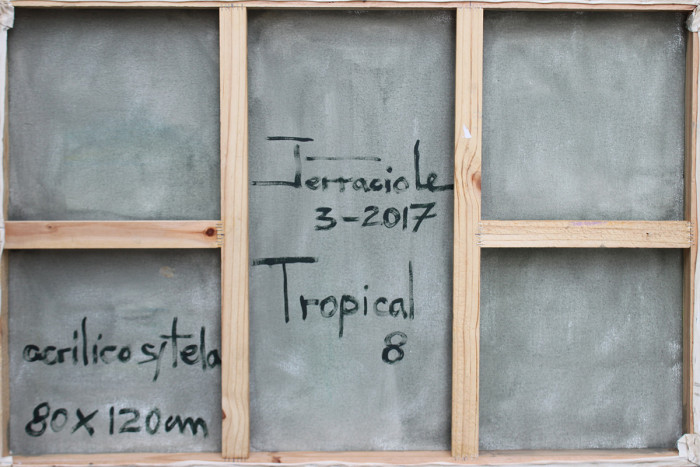 Terraciole
3-2017
Tropical
8
acrilico s/tela
80X120cm